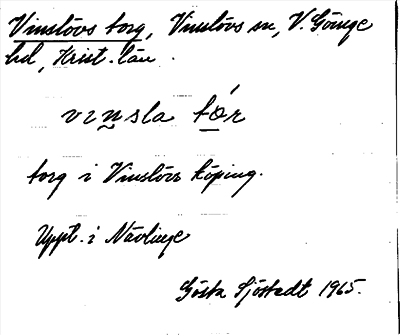 Vinslövs torg, Vinslövs sn, V. Göinge
hd, Krist. län.
vinsla tór
torg i Vinslövs köping.
Uppt. i Nävlinge
Gösta Sjöstedt 1965.